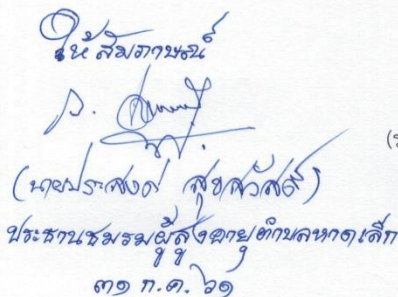 ให้สัมภาษณ์
(นายประสงค์ สุขสวัสดิ์)
ประธานชมรมผู้สูงอายุตำบลหาดเล็ก
๓๑ ก.ค. ๖๑